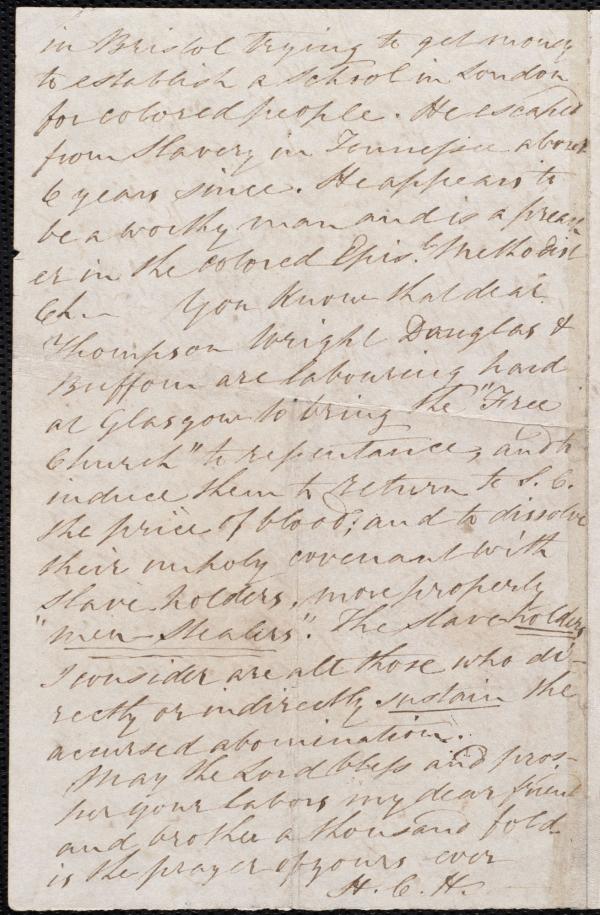 in Bristol trying to get money
to establish a School in London
for colored people. He escaped
from Slavery in Tennessee about
6 years since. He appears to
be a worthy man and is a preach-
er in the colored Epis.l Methodist
Ch. You Know that dear
Thompson Wright Douglas &
Buffom are labouring hard
at Glasgow to bring the "Free
Church" to repentance, and to
induce them to return to S. C.
the price of blood; and to dissolve
their unholy covenant with
slave holders, more properly
"men-Stealers". The slave holders
I consider are all those who di-
rectly or indirectly sustain the
accursed abomination.
May the Lord bless and pros-
per your labors my dear friend
and brother a thousand fold
is the prayer of yours ever
H. C. H.